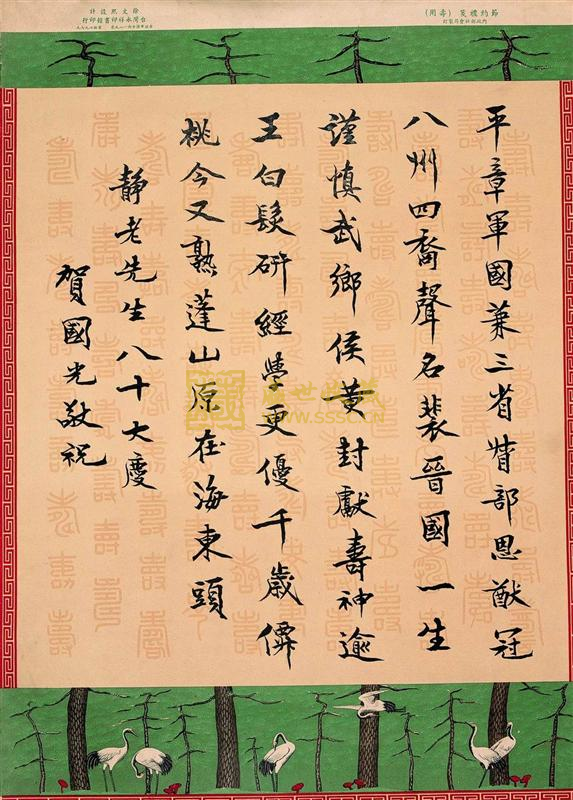 節約禮箋（壽用）
內政部社會司製訂
台灣永祥印書館印行
平章軍國兼三省督部恩猷冠
八州四裔聲名裴晉國一生
謹慎武鄉侯黄封獻壽神逾
王白髮研經學更優千歲僊
桃今又熟蓬山原在海東頭
靜老先生八十大慶
賀國光敬祝
www.sssc.cn